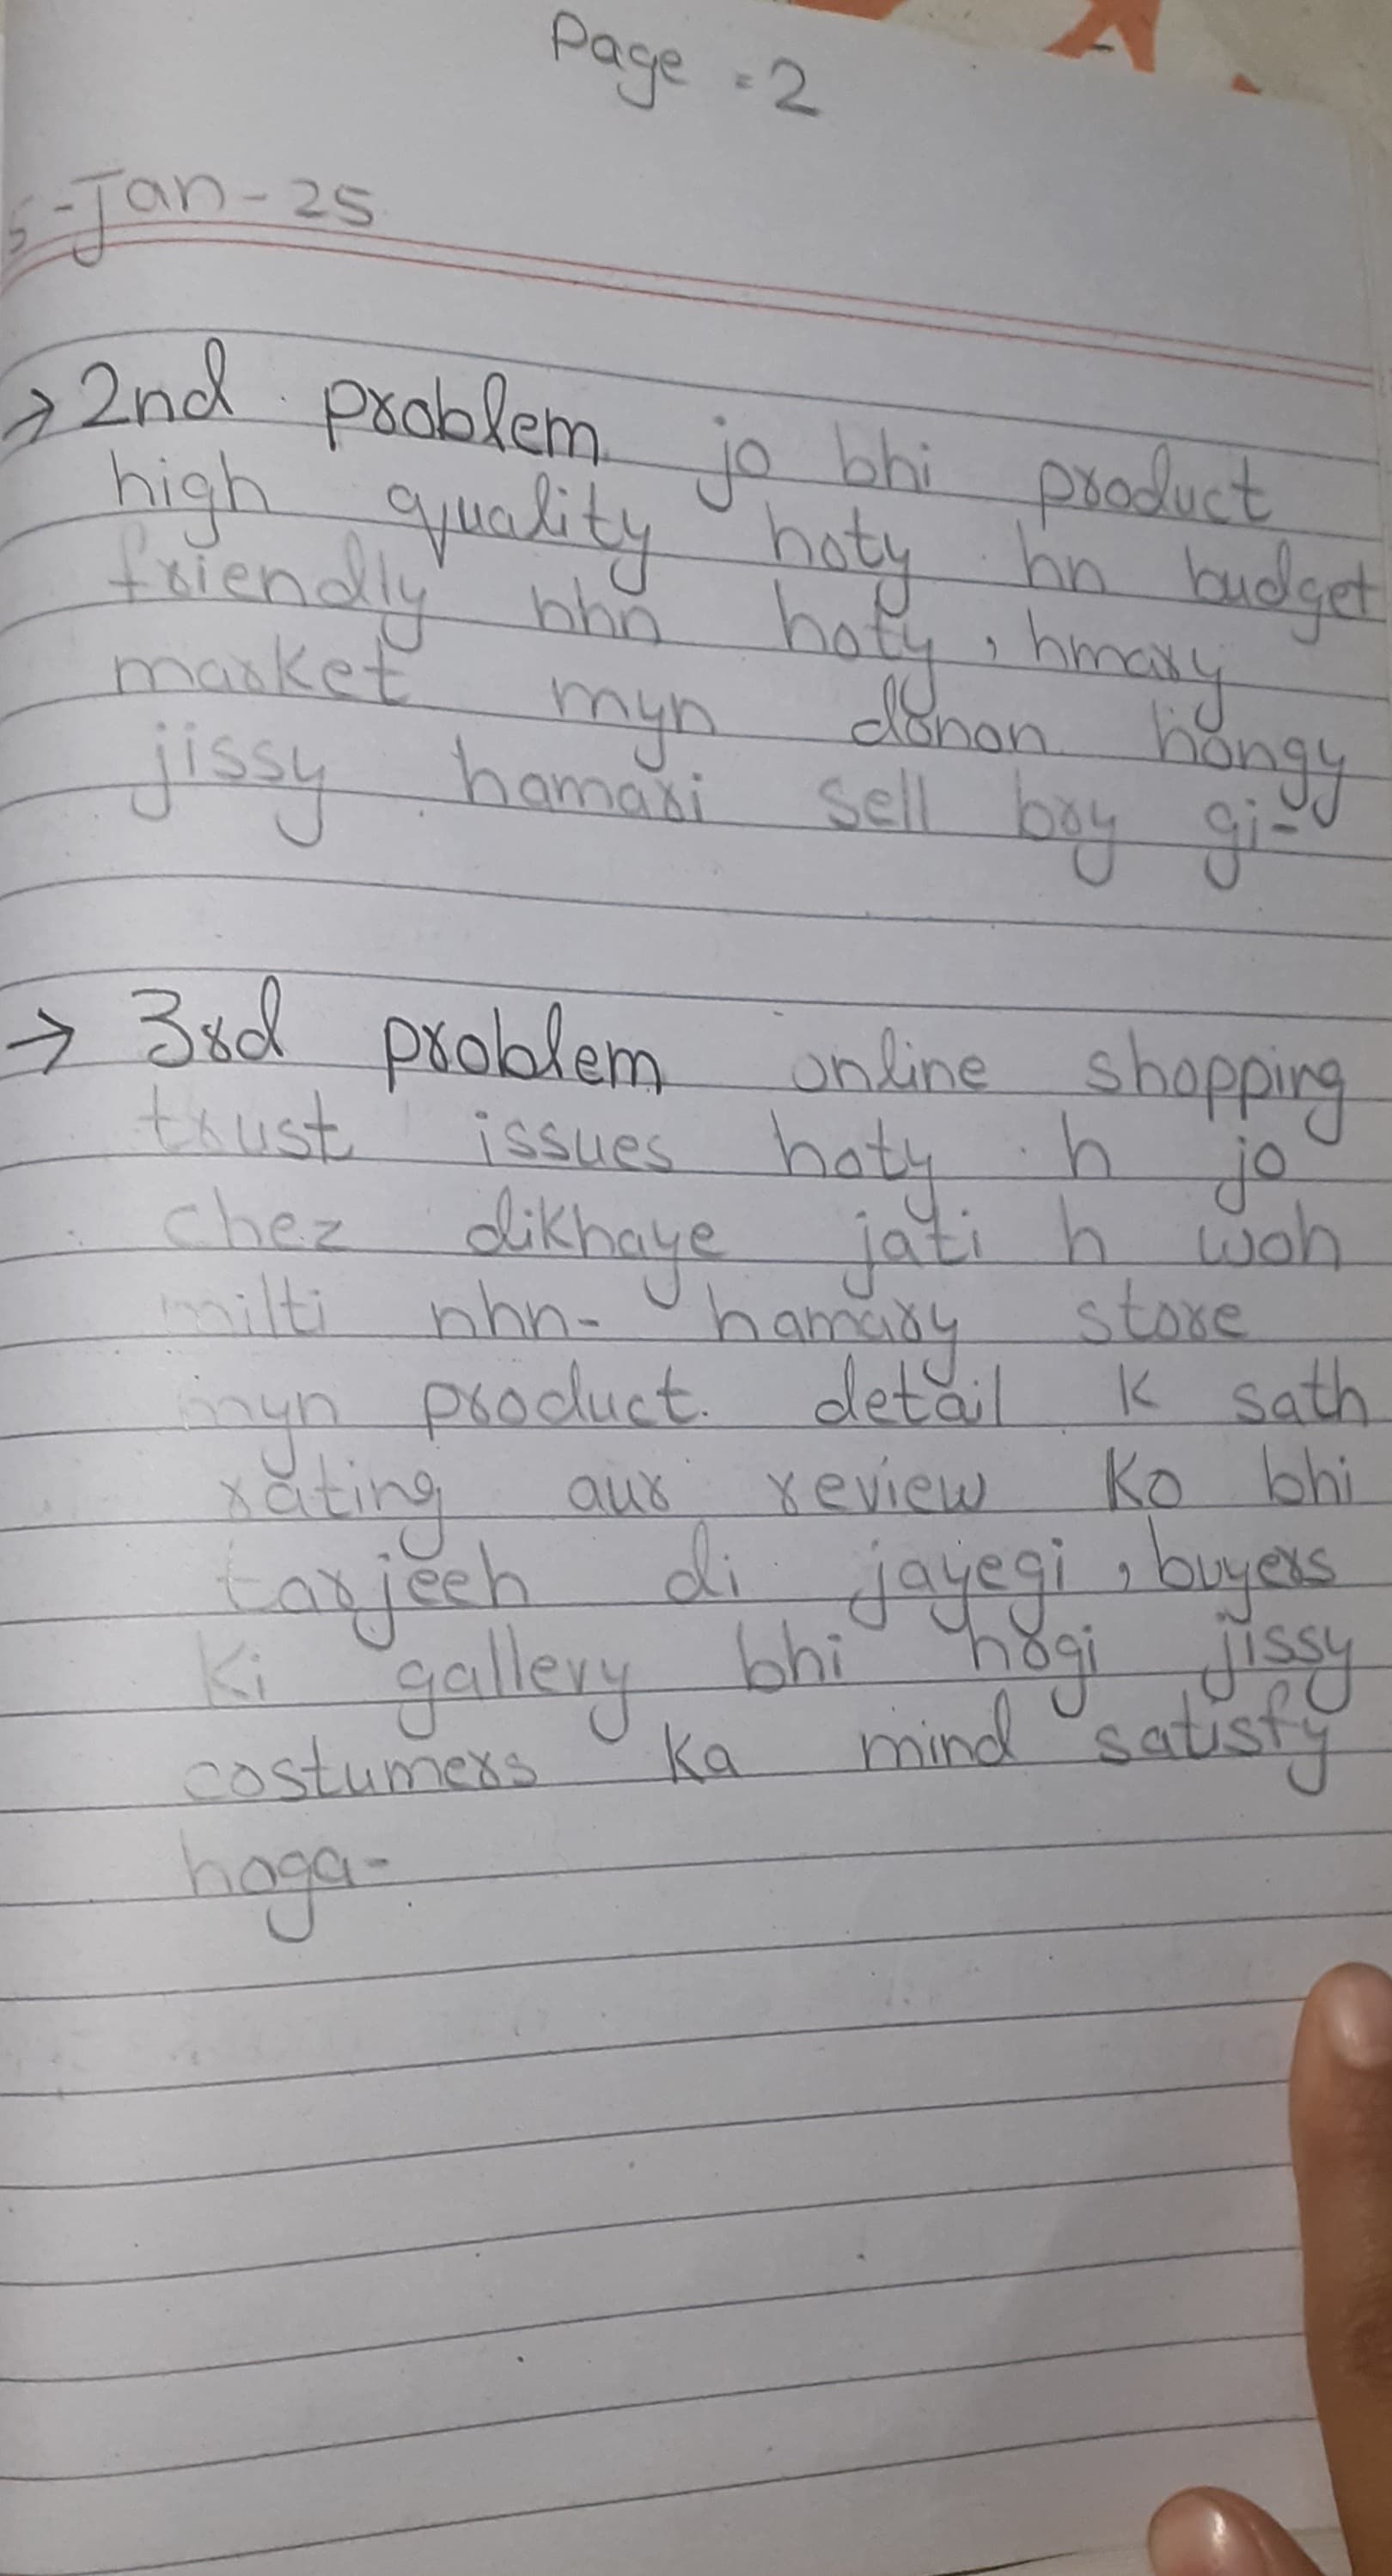 Page = 2
5-Jan-25
→ 2nd problem jo bhi product
high quality hoty hn budget
friendly nhn hoty, hmary
market myn donon hongy
jissy hamari sell bry gi-
→ 3rd problem online shopping
trust issues hoty h jo
chez dikhaye jati h woh
milti nhn- hamary store
myn product detail k sath
rating aur review ko bhi
tarjeeh di jayegi, buyers
ki gallery bhi hogi jissy
costumers ka mind satisfy
hoga-